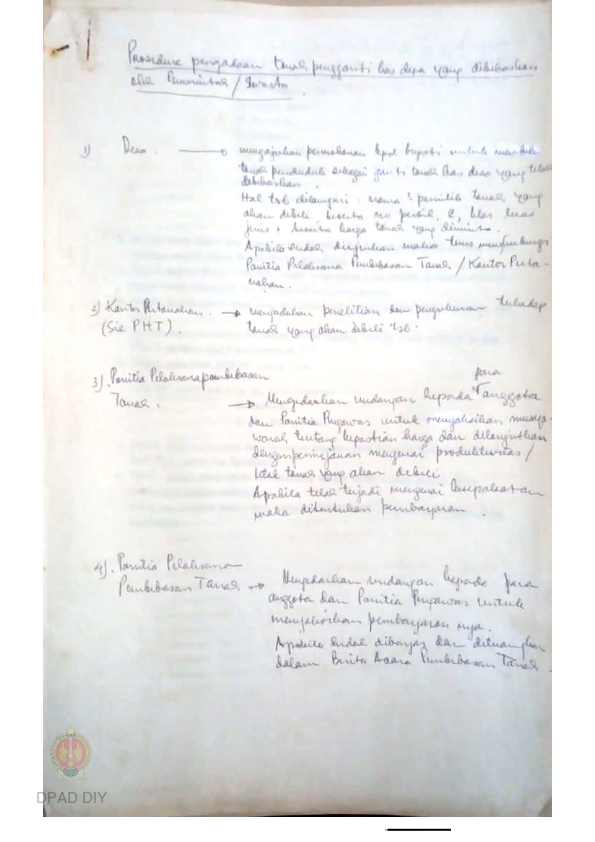 Prosedure pengadaan tanah pengganti kas desa yang dibebaskan
oleh Pemerintah / Swasta.
1) Desa. → mengajukan permohonan kpd bupati untuk membeli
tanah penduduk sebagai ganti tanah kas desa yang telah
dibebaskan.
Hal tsb dilampiri: nama² pemilik tanah yang
akan dibeli beserta no persil, C, klas luas
jenis + beserta harga tanah yang diminta.
Apabila sudah disetujui maka terus menghubungi
Panitia Pelaksana Pembebasan Tanah / Kantor Perta-
nahan.
2) Kantor Pertanahan. → mengadakan penelitian dan pengukuran terhadap
(Sie PHT). tanah yang akan dibeli tsb.
3) Panitia Pelaksana pembebasan
para
Tanah. → Mengedarkan undangan kepada anggota
dan Panitia Pengawas untuk menyaksikan musya-
warah tentang kepastian harga dan dilanjutkan
dengan peninjauan mengenai produktivitas /
letak tanah yang akan dibeli
Apabila telah terjadi mengenai kesepakatan
maka ditentukan pembayaran.
4) Panitia Pelaksana
Pembebasan Tanah → Mengedarkan undangan kepada para
anggota dan Panitia Pengawas untuk
menyaksikan pembayaran nya.
Apabila sudah dibayar dan dituangkan
dalam Berita Acara Pembebasan Tanah.
DPAD DIY